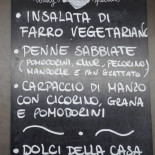 • INSALATA DI
FARRO VEGETARIANO
• PENNE SABBIATE
(POMODORINI, OLIVE, PECORINO,
MANDORLE E PAN GRATTATO)
• CARPACCIO DI MANZO
CON CICORINO, GRANA
E POMODORINI
• DOLCI DELLA CASA